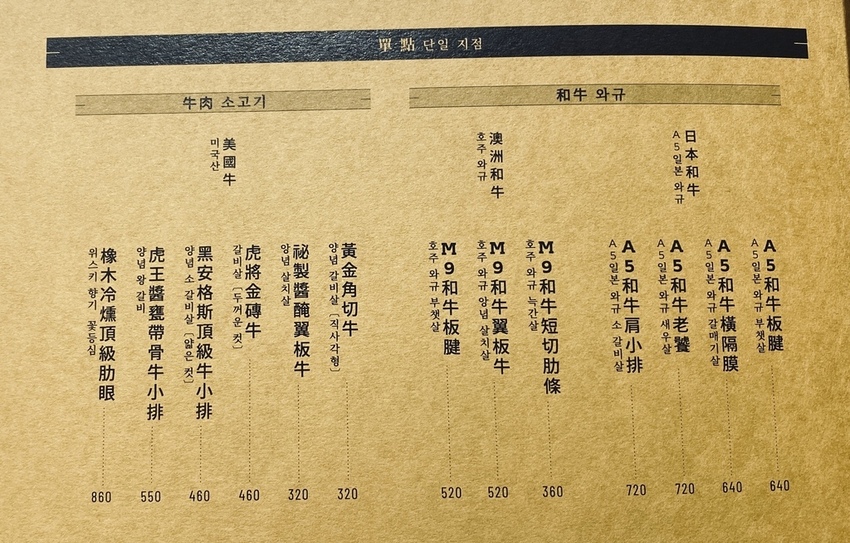 單點 단일 지점
和牛 와규
日本和牛
A5일본 와규
A5和牛板腱
A5일본 와규 부챗살
640
A5和牛橫隔膜
A5일본 와규 갈매기살
640
A5和牛老饕
A5일본 와규 새우살
720
A5和牛肩小排
A5일본 와규 소 갈비살
720
澳洲和牛
호주 와규
M9和牛短切肋條
호주 와규 늑간살
360
M9和牛翼板牛
호주 와규 양념 살치살
520
M9和牛板腱
호주 와규 부챗살
520
牛肉 소고기
美國牛
미국산
黃金角切牛
양념 갈비살 [직사각형]
320
祕製醬醃翼板牛
양념 살치살
320
虎將金磚牛
갈비살 [두꺼운 컷]
460
黑安格斯頂級牛小排
양념 소 갈비살 [얇은 컷]
460
虎王醬甕帶骨牛小排
양념 왕 갈비
550
橡木冷燻頂級肋眼
위스키 향기 꽃등심
860